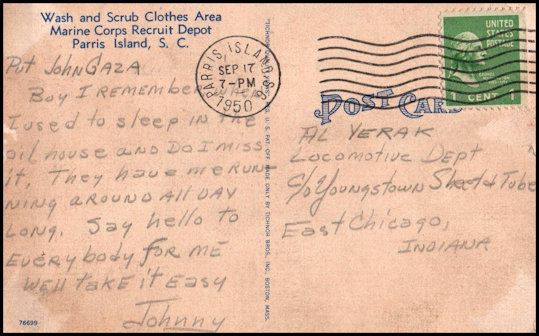 Wash and Scrub Clothes Area
Marine Corps Recruit Depot
Parris Island, S. C.
Pvt John GAZA
Boy I remember when
I used to sleep in the
oil house and Do I miss
it, They have me RUN-
NING AROUND All DAY
Long. Say hello to
EVERYbody foR ME
Well take it Easy
Johnny
76699
BROS., INC., BOSTON, MASS.
PARRIS ISLAND
SEP 17
7-PM
1950
S.C.
UNITED
STATES
POSTAGE
1 CENT 1
POST CARD
AL YERAK
Locomotive Dept
c/o Youngstown Sheet & Tube
East Chicago,
INDIANA